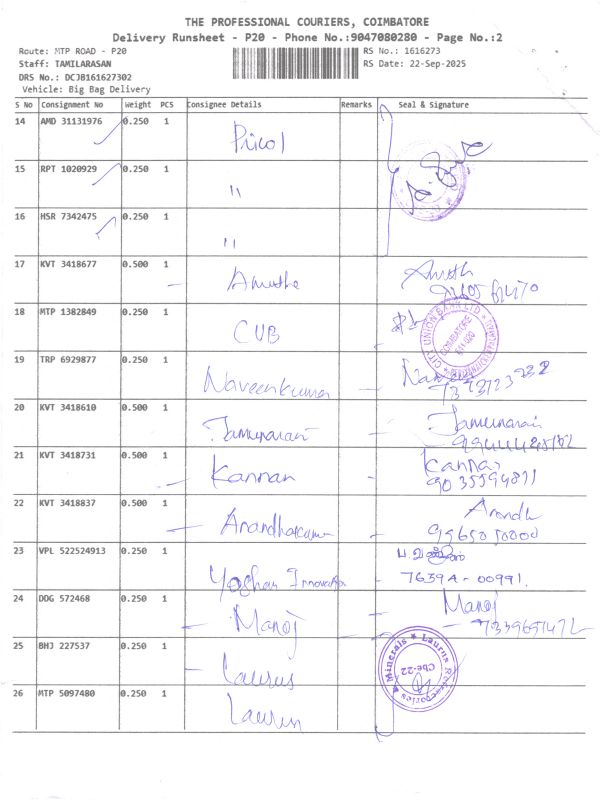 THE PROFESSIONAL COURIERS, COIMBATORE
Delivery Runsheet - P20 - Phone No.:9047080280 - Page No.:2
Route: MTP ROAD - P20 RS No.: 1616273
Staff: TAMILARASAN RS Date: 22-Sep-2025
DRS No.: DCJB161627302
Vehicle: Big Bag Delivery
S No Consignment No Weight PCS Consignee Details Remarks Seal & Signature
14 AMD 31131976 0.250 1 Pricol
15 RPT 1020929 0.250 1 "
16 HSR 7342475 0.250 1 "
17 KVT 3418677 0.500 1
18 MTP 1382849 0.250 1 CUB
CITY UNION BANK LTD COIMBATORE
19 TRP 6929877 0.250 1 Naveenkumar
20 KVT 3418610 0.500 1 Jamunarani Jamunarani
21 KVT 3418731 0.500 1 Kannan Kannan
22 KVT 3418837 0.500 1 Anandhakumar
9965050000
23 VPL 522524913 0.250 1
76394-00991
24 DDG 572468 0.250 1 Manoj Manoj
25 BHJ 227537 0.250 1 Laurus
Laurus Refractories & Minerals Cbe-22
26 MTP 5097480 0.250 1